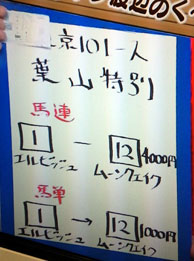 京10レース
葉山特別
馬連
1 — 12 4000円
エルビッシュ ムーンクエイク
馬単
1 → 12 1000円
エルビッシュ ムーンクエイク